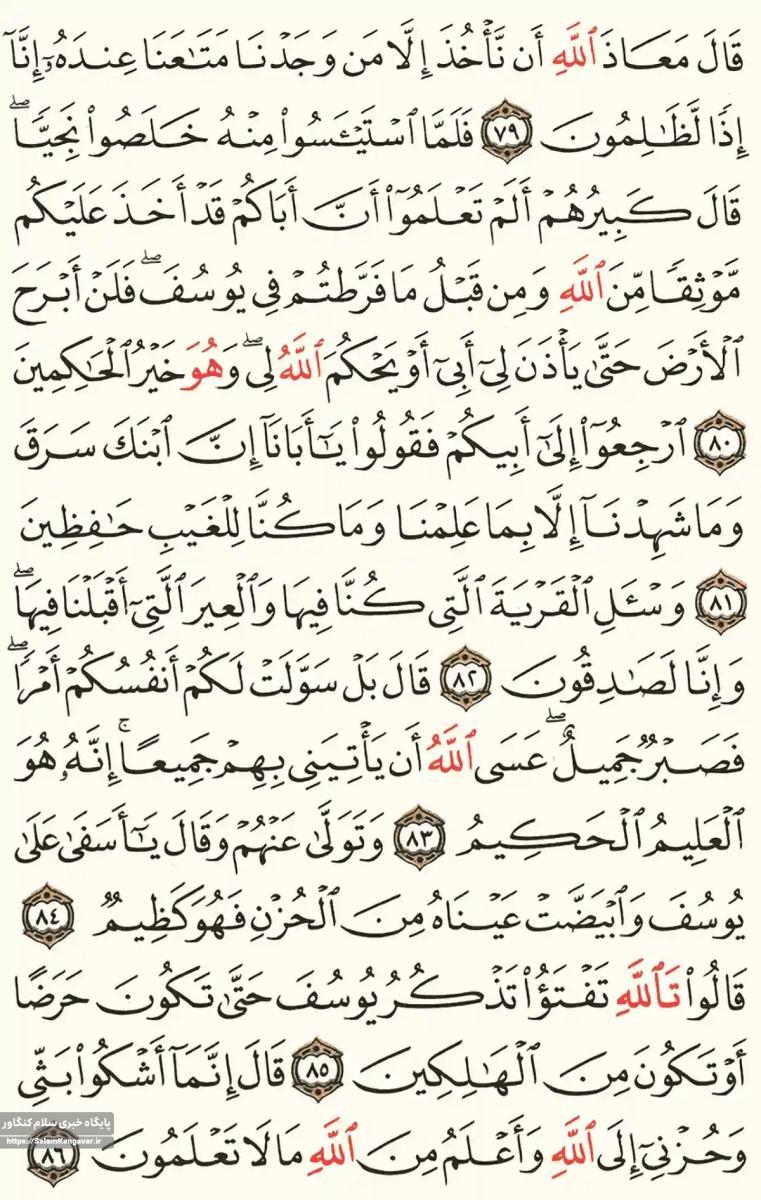 قَالَ مَعَاذَ ٱللَّهِ أَن نَّأْخُذَ إِلَّا مَن وَجَدْنَا مَتَٰعَنَا عِندَهُۥٓ إِنَّآ
إِذًا لَّظَٰلِمُونَ ٧٩ فَلَمَّا ٱسْتَيْـَٔسُوا۟ مِنْهُ خَلَصُوا۟ نَجِيًّا ۖ
قَالَ كَبِيرُهُمْ أَلَمْ تَعْلَمُوٓا۟ أَنَّ أَبَاكُمْ قَدْ أَخَذَ عَلَيْكُم
مَّوْثِقًا مِّنَ ٱللَّهِ وَمِن قَبْلُ مَا فَرَّطتُمْ فِى يُوسُفَ ۖ فَلَنْ أَبْرَحَ
ٱلْأَرْضَ حَتَّىٰ يَأْذَنَ لِىٓ أَبِىٓ أَوْ يَحْكُمَ ٱللَّهُ لِى ۖ وَهُوَ خَيْرُ ٱلْحَٰكِمِينَ
٨٠ ٱرْجِعُوٓا۟ إِلَىٰٓ أَبِيكُمْ فَقُولُوا۟ يَٰٓأَبَانَآ إِنَّ ٱبْنَكَ سَرَقَ
وَمَا شَهِدْنَآ إِلَّا بِمَا عَلِمْنَا وَمَا كُنَّا لِلْغَيْبِ حَٰفِظِينَ
٨١ وَسْـَٔلِ ٱلْقَرْيَةَ ٱلَّتِى كُنَّا فِيهَا وَٱلْعِيرَ ٱلَّتِىٓ أَقْبَلْنَا فِيهَا ۖ
وَإِنَّا لَصَٰدِقُونَ ٨٢ قَالَ بَلْ سَوَّلَتْ لَكُمْ أَنفُسُكُمْ أَمْرًا ۖ
فَصَبْرٌ جَمِيلٌ ۖ عَسَى ٱللَّهُ أَن يَأْتِيَنِى بِهِمْ جَمِيعًا ۚ إِنَّهُۥ هُوَ
ٱلْعَلِيمُ ٱلْحَكِيمُ ٨٣ وَتَوَلَّىٰ عَنْهُمْ وَقَالَ يَٰٓأَسَفَىٰ عَلَىٰ
يُوسُفَ وَٱبْيَضَّتْ عَيْنَاهُ مِنَ ٱلْحُزْنِ فَهُوَ كَظِيمٌ ٨٤
قَالُوا۟ تَٱللَّهِ تَفْتَؤُا۟ تَذْكُرُ يُوسُفَ حَتَّىٰ تَكُونَ حَرَضًا
أَوْ تَكُونَ مِنَ ٱلْهَٰلِكِينَ ٨٥ قَالَ إِنَّمَآ أَشْكُوا۟ بَثِّى
وَحُزْنِىٓ إِلَى ٱللَّهِ وَأَعْلَمُ مِنَ ٱللَّهِ مَا لَا تَعْلَمُونَ ٨٦
پایگاه خبری سلام کنگاور
https://SalamKangavar.ir